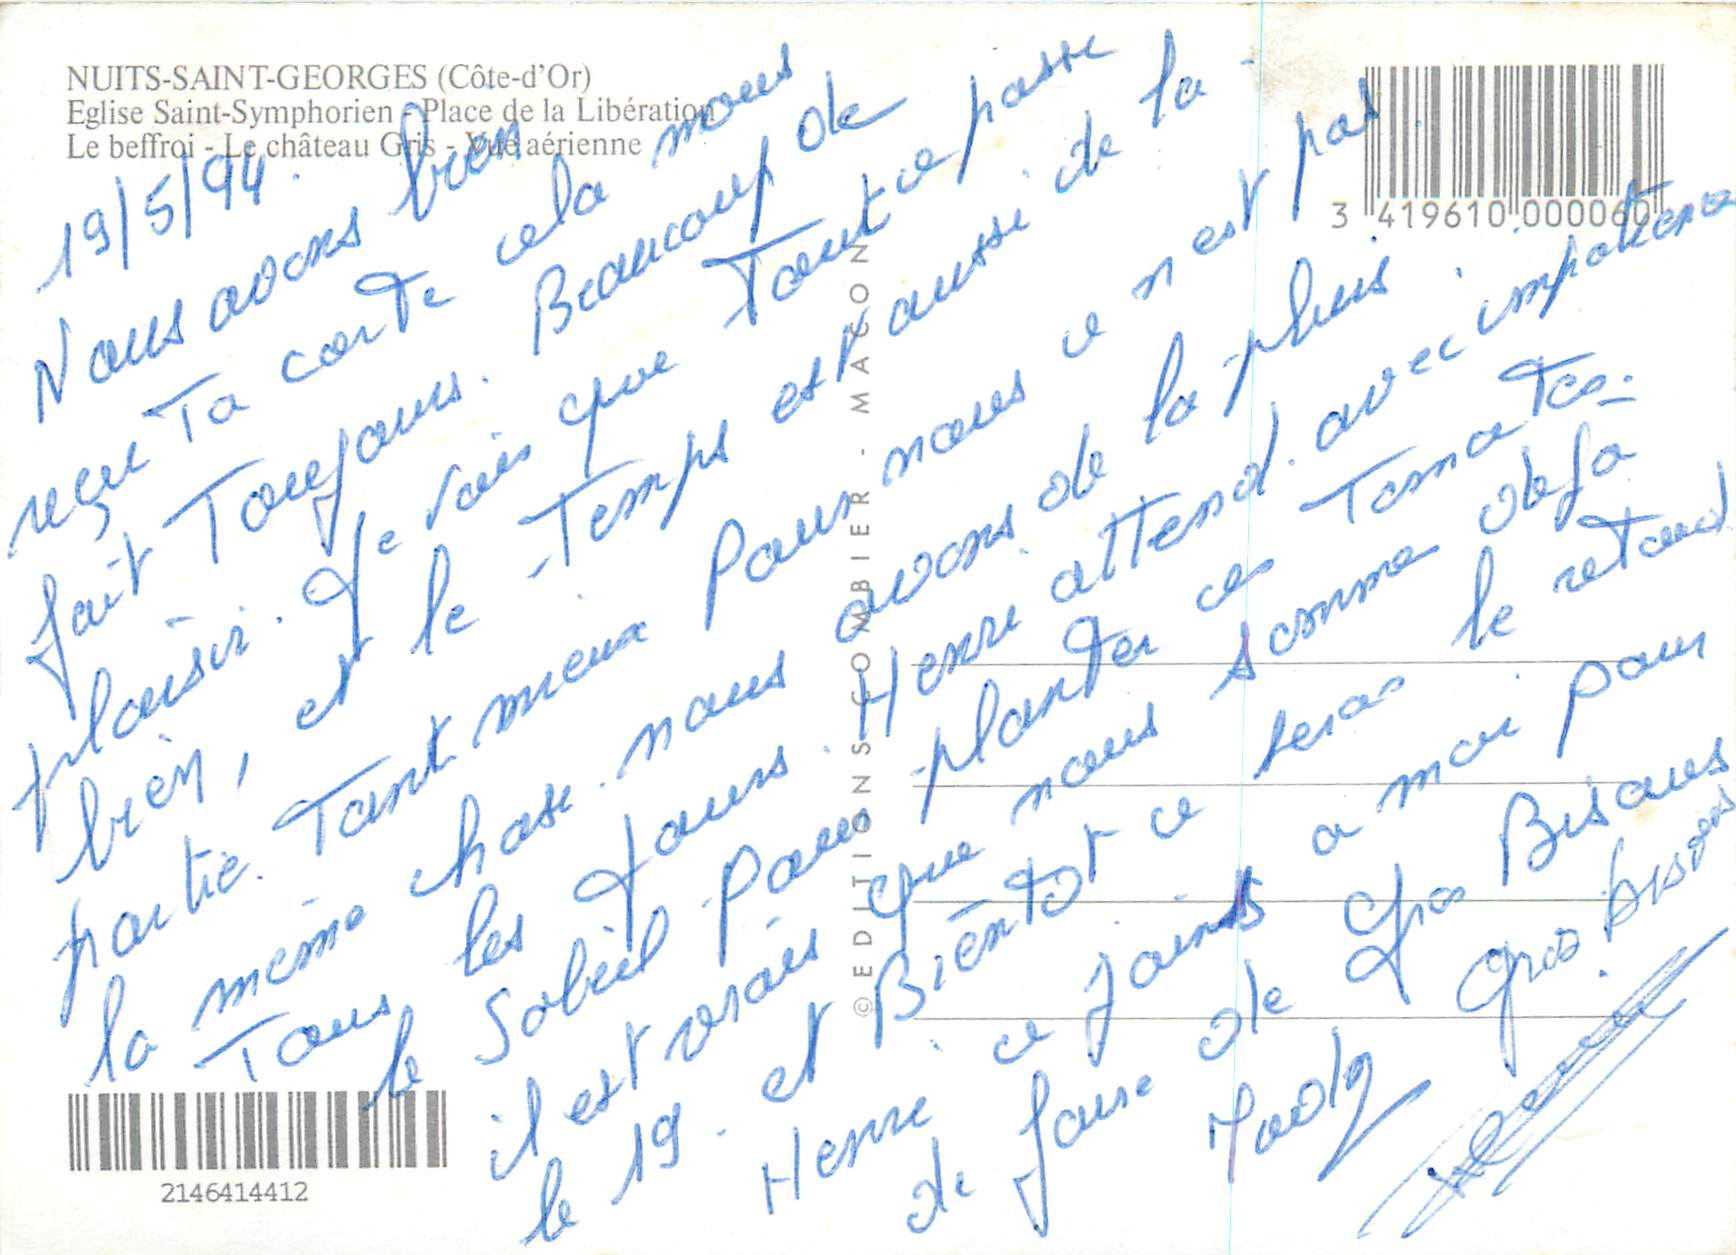 NUITS-SAINT-GEORGES (Côte-d'Or)
Eglise Saint-Symphorien - Place de la Libération
Le beffroi - Le château Gris - Vue aérienne
3 419610 000060
19/5/94.
Nous avons bien
reçu Ta carte cela nous
fait Toujours. Beaucoup de
plaisir. Je vois que Tout ce passe
bien, et le Temps est aussi de la
partie. Tant mieux Pour nous ce n est pas
la même chose. nous avons de la pluis.
Tous les Jours. Henri attend avec impatience
le Soleil Pour planter ces Tomates.
il est vrais que nous somme deja
le 19. et Bientot ce seras le retour
Henri ce joints a moi pour
de faire de Gros Bisous
Gros bisous
Henri
© EDITIONS COMBIER - MACON
2146414412